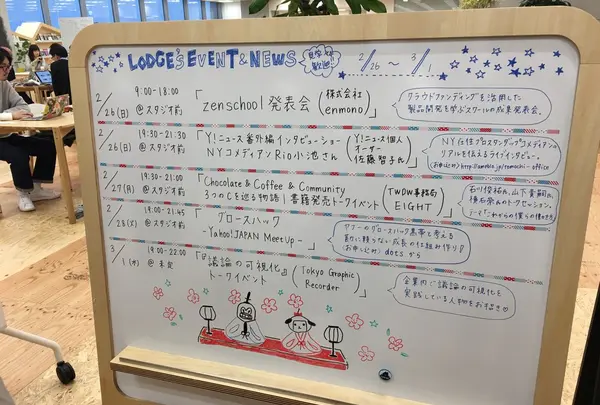 LODGE'S EVENT & NEWS
2/26 ~ 3/1
2/26(日) 9:00-18:00 @スタジオ前
「zenschool 発表会 (株式会社 enmono)」
クラウドファンディングを活用した
製品開発を学ぶスクールの成果発表会。
2/26(日) 19:30-21:30 @スタジオ前
「Y!ニュース番外編インタビューショー
NYコメディアンRio小池さん (Y!ニュース個人 オーサー 佐藤智子氏)」
NY在住プロスタンダップコメディアンの
リアルを伝えるライブインタビュー。
2/27(月) 19:30-21:00 @スタジオ前
「Chocolate & Coffee & Community
3つのCを巡る物語 書籍発売トークイベント (TWDW事務局 EIGHT)」
2/28(火) -21:45 @スタジオ前
「グロースハック
-Yahoo! JAPAN Meet Up-」
ヤフーのグロースハック黒帯と考える
割に頼らない成長の仕組み作り
(お申し込み) dots.から
3/1(水) 19:00-22:00 @未定
「『議論の可視化』
トークイベント (Tokyo Graphic Recorder)」
企業内で議論の可視化を
実践している人物をお招き♡